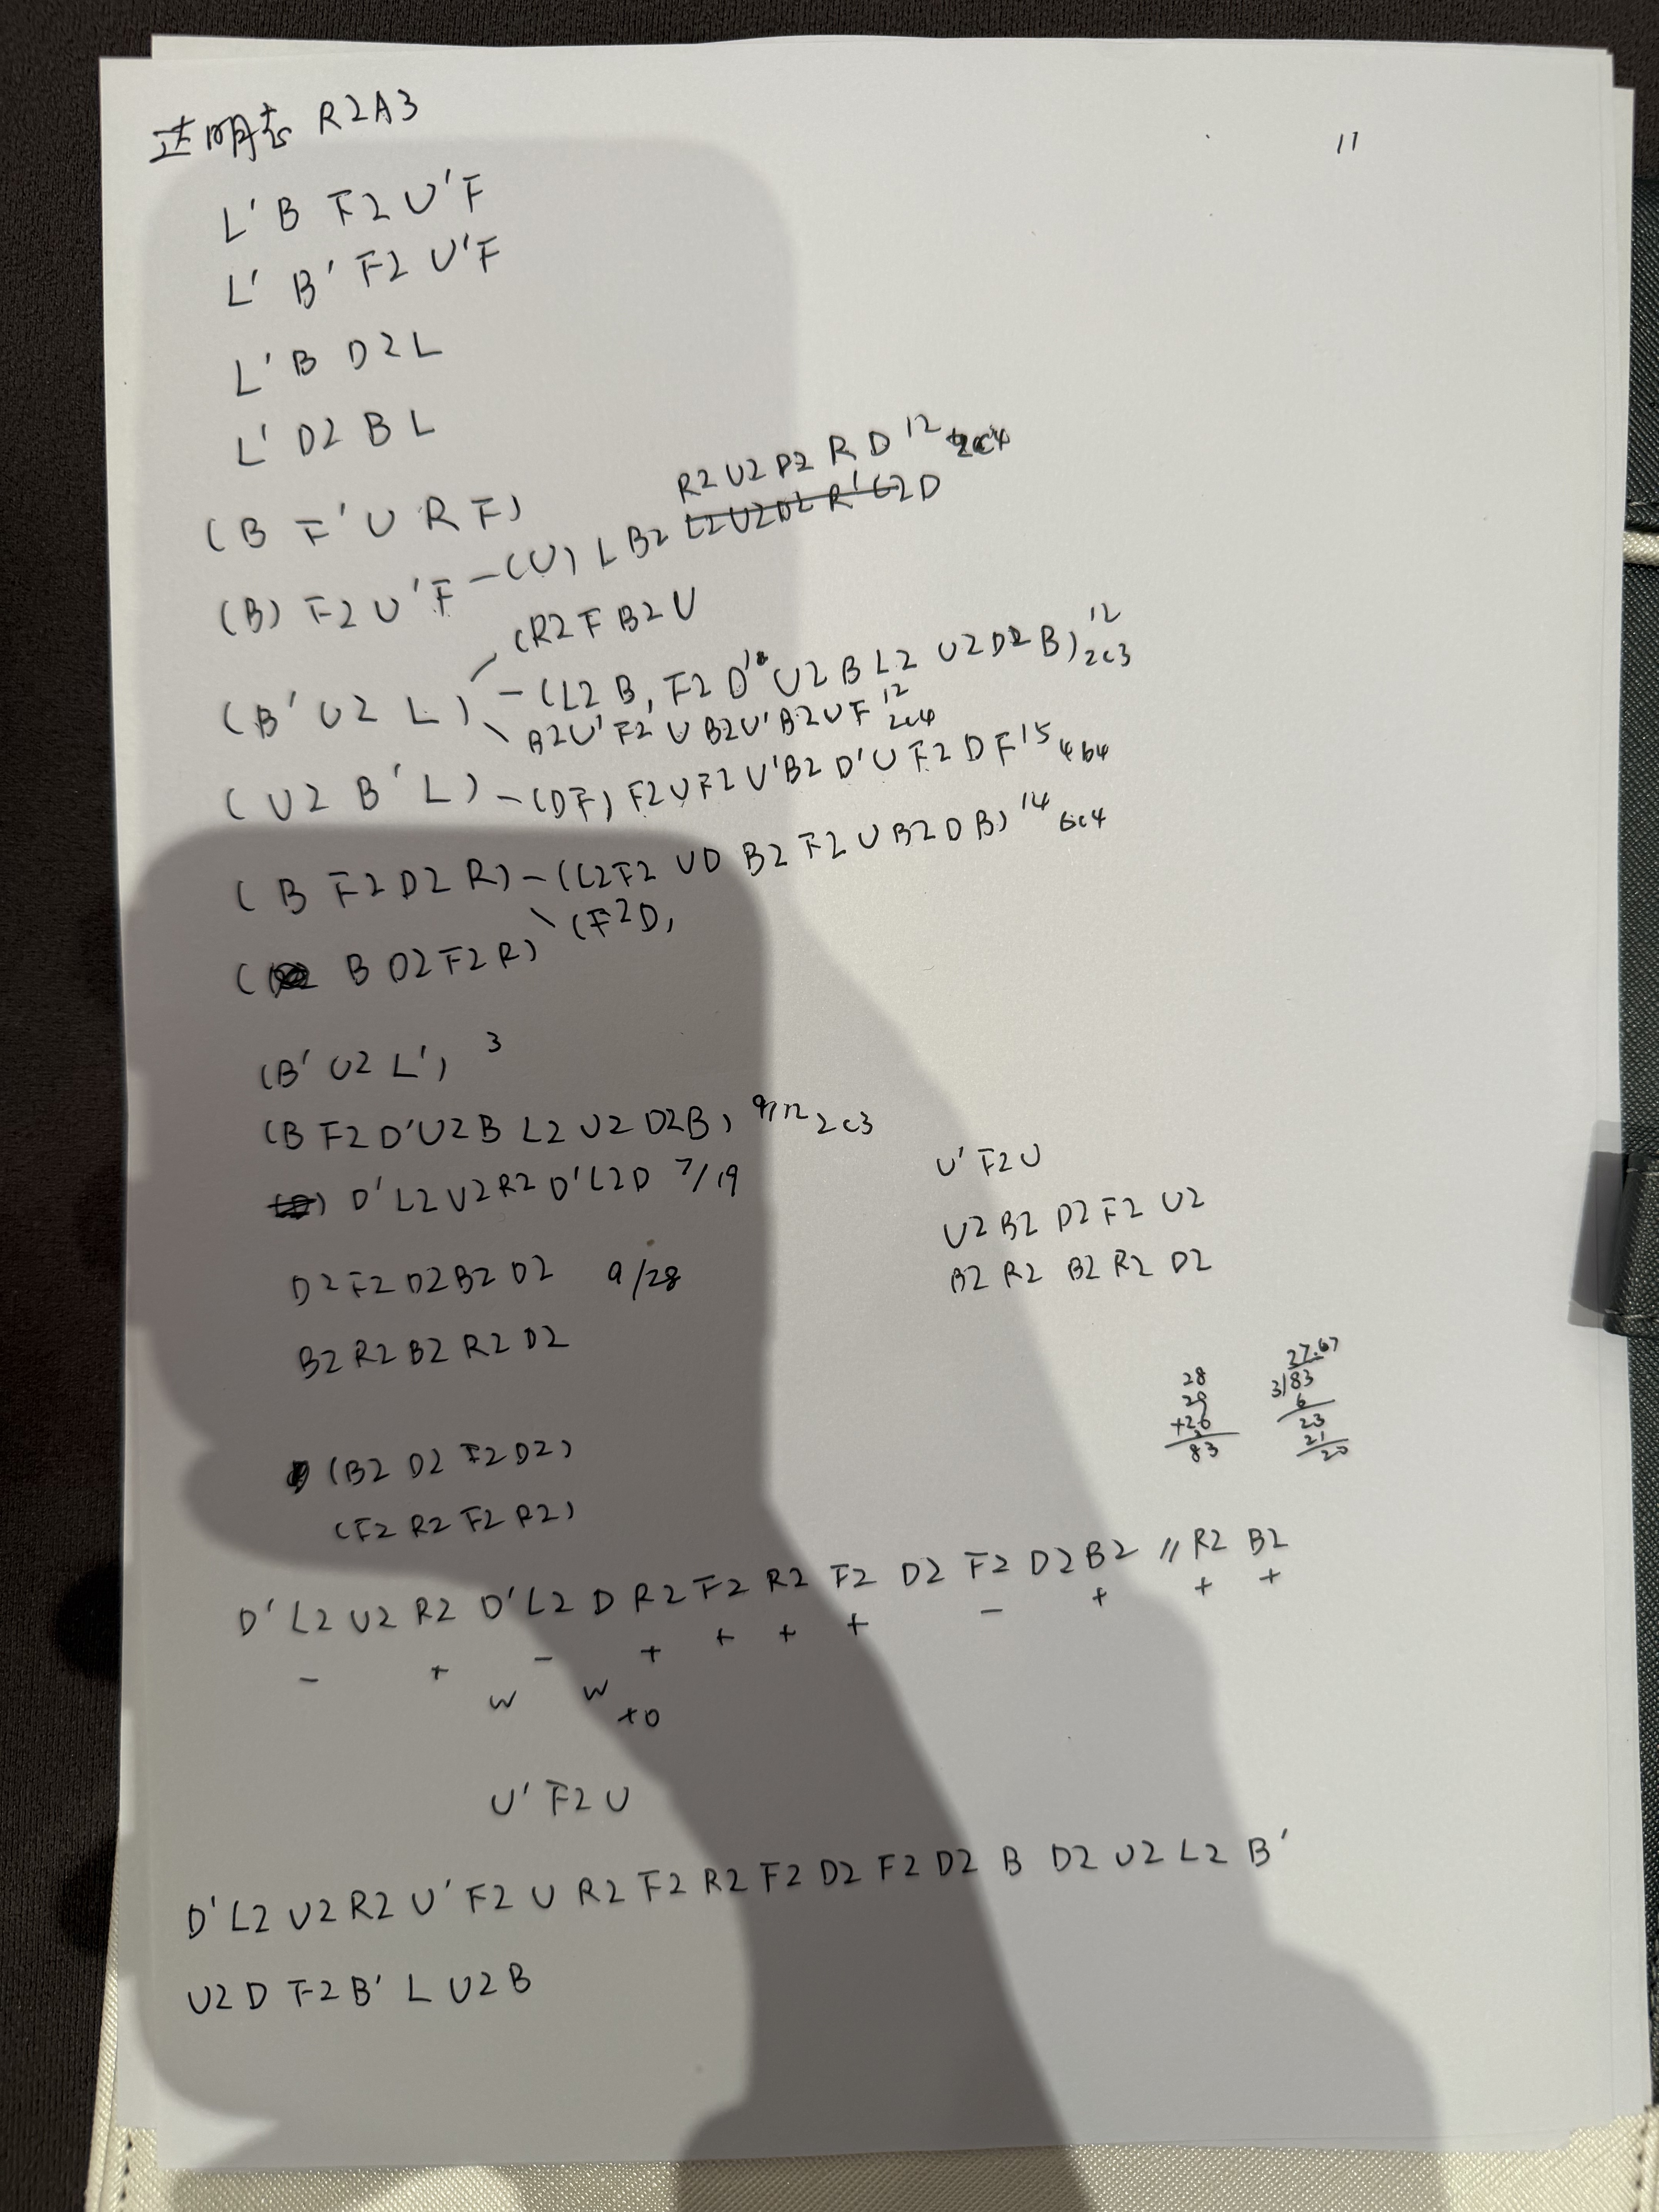 R2A3
11
L' B F2 U' F
L' B' F2 U' F
L' B D2 L
L' D2 B L
R2 U2 D2 R D 12
(B F' U R F)
(B) F2 U' F - (U) L B2 L2 U2 D2 R' L2 D
(R2 F B2 U
(B' U2 L) - (L2 B, F2 D' U2 B L2 U2 D2 B) 12 2c3
B2 U' F2 U B2 U' B2 U F 12 2c4
(U2 B' L) - (DF) F2 U F2 U' B2 D' U F2 D F 15 4b4
(B F2 D2 R) - (L2 F2 U D B2 F2 U B2 D B) 14 6c4
(F2 D,
( B D2 F2 R)
(B' U2 L') 3
(B F2 D' U2 B L2 U2 D2 B) 9/12 2c3
D' L2 U2 R2 D' L2 D 7/19
D2 F2 D2 B2 D2 9/28
B2 R2 B2 R2 D2
U' F2 U
U2 B2 D2 F2 U2
B2 R2 B2 R2 D2
28
+26
83
27.67
3/83
6
23
21
20
(B2 D2 F2 D2)
(F2 R2 F2 R2)
D' L2 U2 R2 D' L2 D R2 F2 R2 F2 D2 F2 D2 B2 // R2 B2
- + - + + + + - + + +
w w
+0
U' F2 U
D' L2 U2 R2 U' F2 U R2 F2 R2 F2 D2 F2 D2 B D2 U2 L2 B'
U2 D F2 B' L U2 B